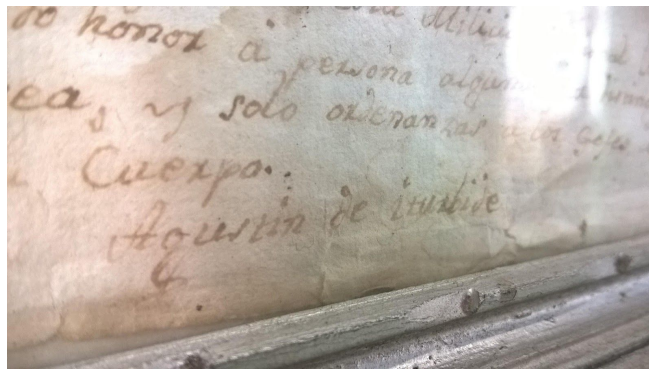 do honor à persona alguna
ea, y solo ordenanzas a los Gefes
Cuerpo.
Agustin de iturbide